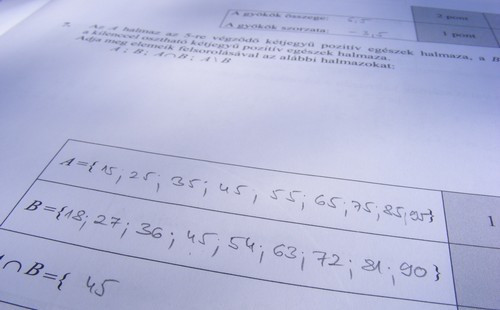 A gyökök összege: 2,5 2 pont
A gyökök szorzata: 1 pont
Az A halmaz az 5-re végződő kétjegyű pozitív egészek halmaza, a B
a kilenccel osztható kétjegyű pozitív egészek halmaza.
Adja meg elemeik felsorolásával az alábbi halmazokat:
A ; B ; A∩B ; A\B
A={15; 25; 35; 45, 55; 65; 75; 85; 95} 1
B={18; 27; 36; 45; 54; 63; 72; 81; 90}
∩ B={ 45